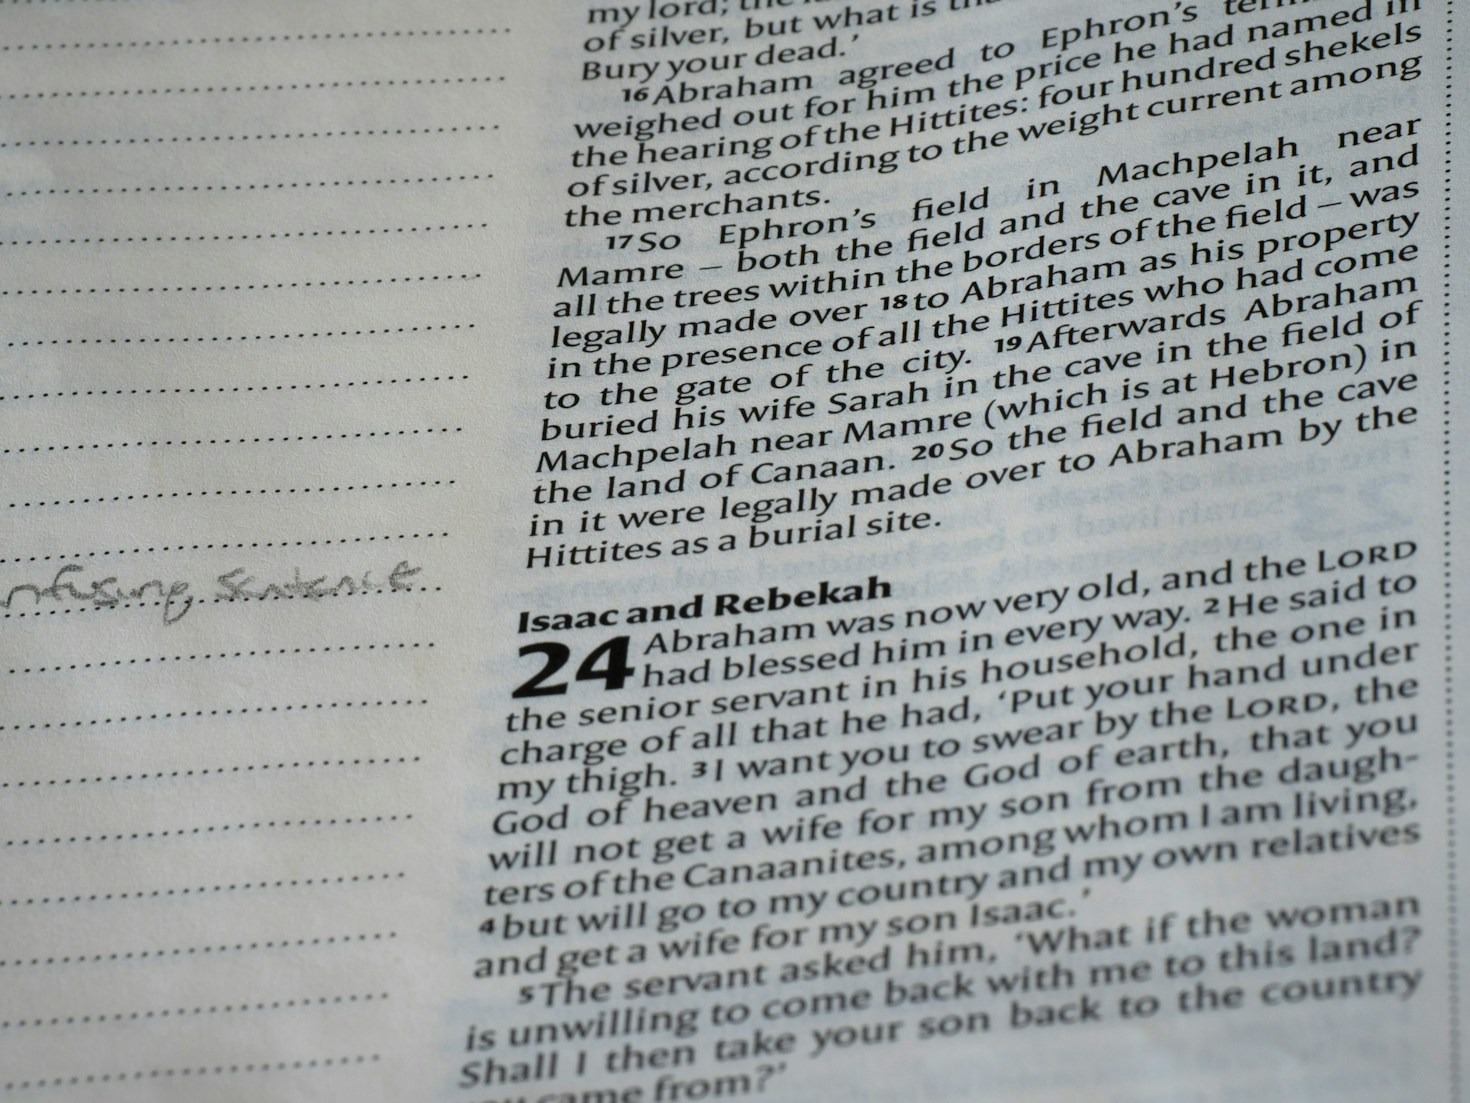 my lord; the
of silver, but what is
Bury your dead.'
16 Abraham agreed to Ephron's
weighed out for him the price he had named in
the hearing of the Hittites: four hundred shekels
of silver, according to the weight current among
the merchants.
17 So Ephron's field in Machpelah near
Mamre – both the field and the cave in it, and
all the trees within the borders of the field – was
legally made over 18 to Abraham as his property
in the presence of all the Hittites who had come
to the gate of the city. 19 Afterwards Abraham
buried his wife Sarah in the cave in the field of
Machpelah near Mamre (which is at Hebron) in
the land of Canaan. 20 So the field and the cave
in it were legally made over to Abraham by the
Hittites as a burial site.
nfusing sentence
Isaac and Rebekah
24 Abraham was now very old, and the LORD
had blessed him in every way. 2 He said to
the senior servant in his household, the one in
charge of all that he had, 'Put your hand under
my thigh. 3 I want you to swear by the LORD, the
God of heaven and the God of earth, that you
will not get a wife for my son from the daugh-
ters of the Canaanites, among whom I am living,
4 but will go to my country and my own relatives
and get a wife for my son Isaac.'
5 The servant asked him, 'What if the woman
is unwilling to come back with me to this land?
Shall I then take your son back to the country
you came from?'